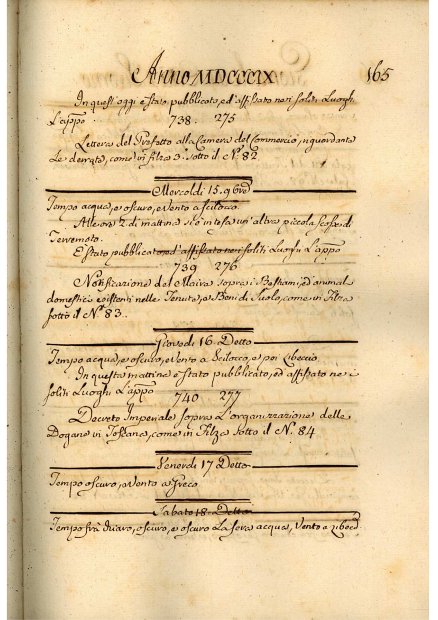 Anno MDCCCIX 165
In quest' oggi è stato pubblicato, ed' affissato nei soliti Luoghi
L'app.o 738. 275
Lettera del Prefetto alla Camera del Commercio, riguardante
Le derrate, come in filza 3.a sotto il N.o 82
Mercoldi 15. 9bre
Tempo acqua, e oscuro, e Vento a Scilocco
Alle ore 2. di mattina si è intesa un' altra piccola scossa di
Terremoto.
È stato pubblicato ed' affissato nei soliti Luoghi L'app.o
739 276
Notificazione del Maire sopra i Bestiami, ed' animali
domestici esistenti nelle Tenute, e Beni di Suolo, come in Filza
sotto il N.o 83.
Giovedi 16. Detto
Tempo acqua, e oscuro, e Vento a Scilocco, e poi Libeccio
In questa mattina è stato pubblicato, ed affissato nei
soliti Luoghi L'app.o
740 277
Decreto Imperiale sopra L'organizzazione delle
Dogane in Toscana, come in Filza sotto il N. 84
Venerdi 17 Detto
Tempo oscuro, e Vento a Greco
Sabato 18. Detto
Tempo frà chiaro, oscuro, e oscuro La sera acqua, Vento a